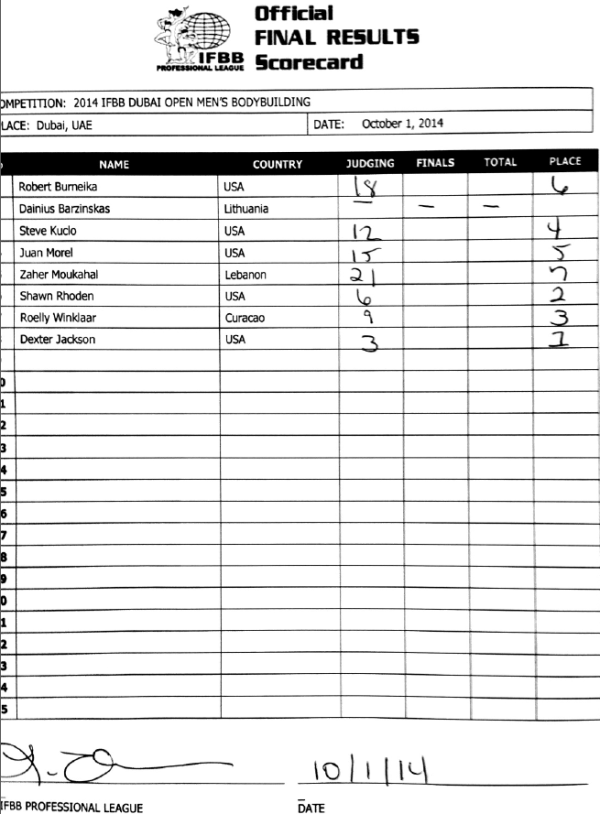 Official
FINAL RESULTS
Scorecard
IFBB
PROFESSIONAL LEAGUE
OMPETITION: 2014 IFBB DUBAI OPEN MEN'S BODYBUILDING
LACE: Dubai, UAE DATE: October 1, 2014
NAME COUNTRY JUDGING FINALS TOTAL PLACE
Robert Burneika USA 18 6
Dainius Barzinskas Lithuania — — —
Steve Kuclo USA 12 4
Juan Morel USA 15 5
Zaher Moukahal Lebanon 21 7
Shawn Rhoden USA 6 2
Roelly Winklaar Curacao 9 3
Dexter Jackson USA 3 1
0
1
2
3
4
5
6
7
8
9
0
1
2
3
4
5
10/1/14
IFBB PROFESSIONAL LEAGUE DATE